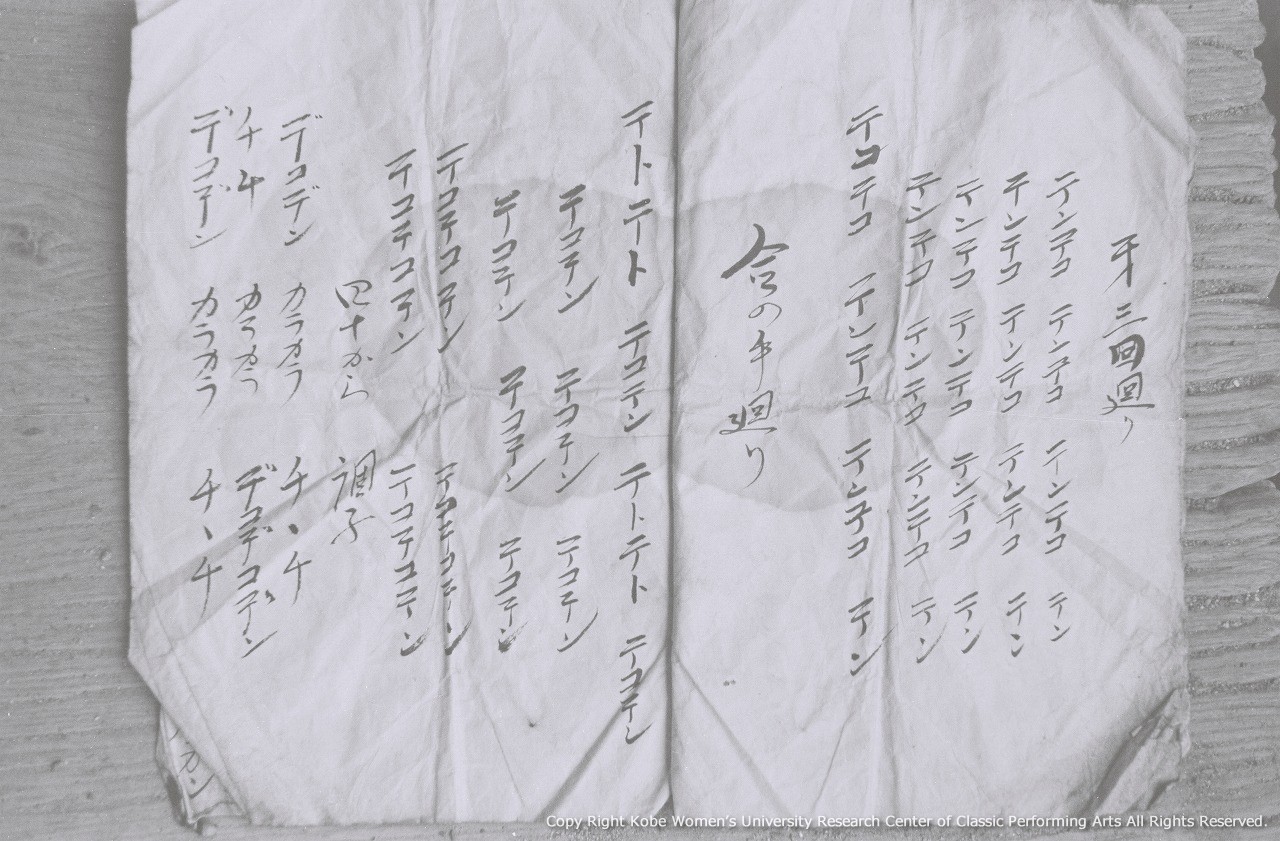 才三回廻り
テンテコ テンテコ テンテコ テン
テンテコ テンテコ テンテコ テン
テンテコ テンテコ テンテコ テン
テンテコ テンテコ テンテコ テン
テコテコ テンテコ テンテコ テン
合の手廻り
テトテート テコテン テトテト テコテン
テコテン テコテン テコテン
テコテン テコテン テコテン
テコテコテン テコテコテン
テコテコテン テコテコテン
四十から 調子
デコデン カラカラ チ、チ
チチ カラカラ デコデコデン
デコデン カラカラ チ、チ
カン
Copy Right Kobe Women's University Research Center of Classic Performing Arts All Rights Reserved.